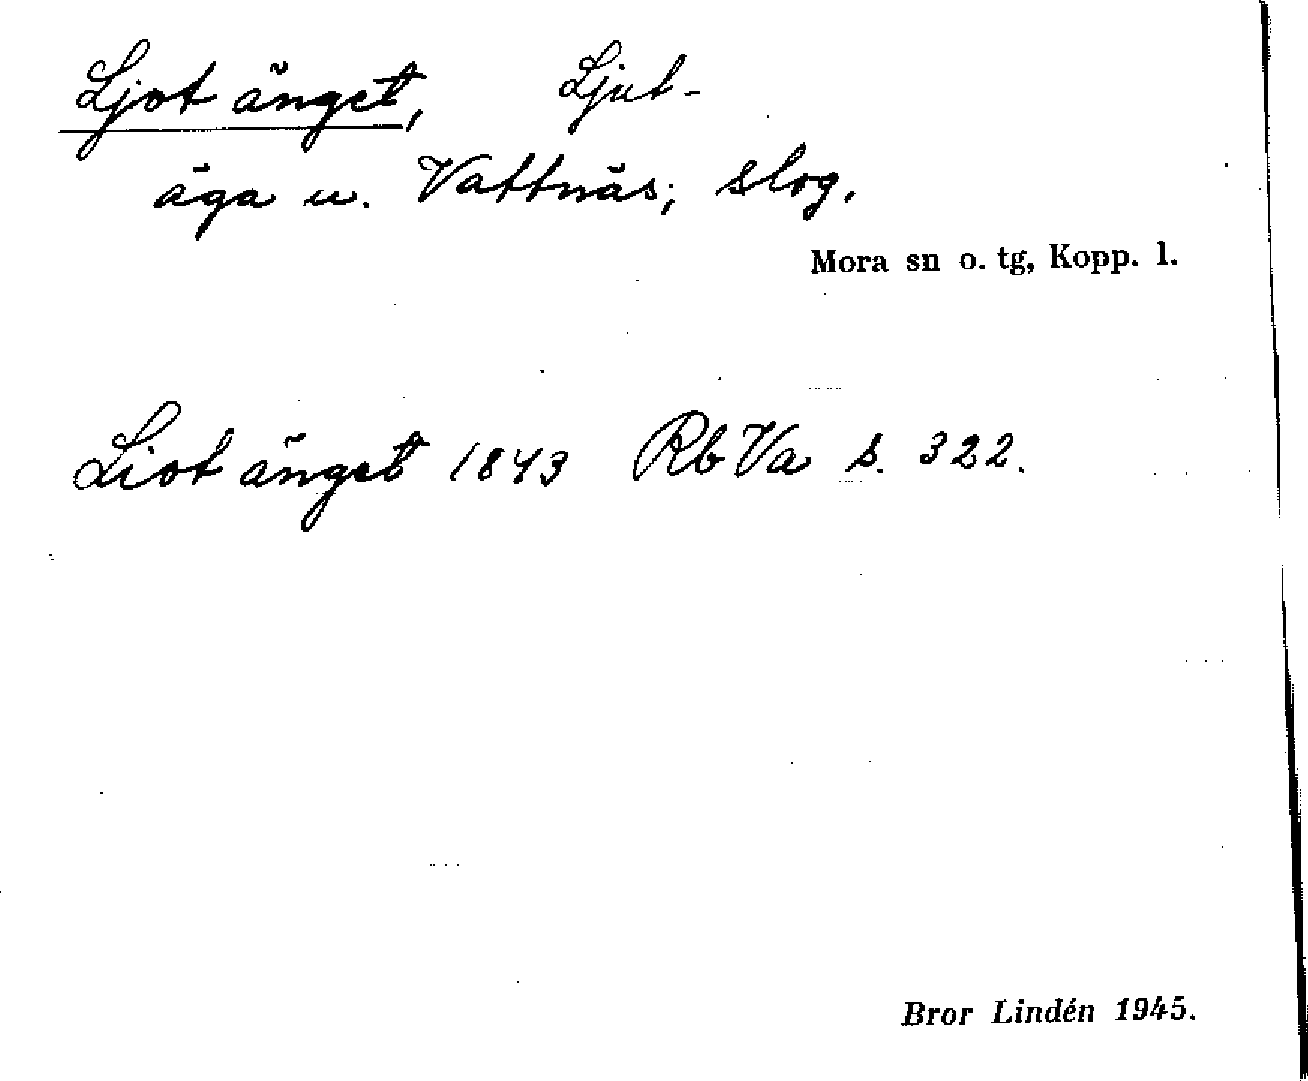 Ljot änget, Ljut-
äga u. Vattnäs; slog.
Mora sn o. tg, Kopp. l.
Liot änget 1843 Rb Va s. 322.
Bror Lindén 1945.